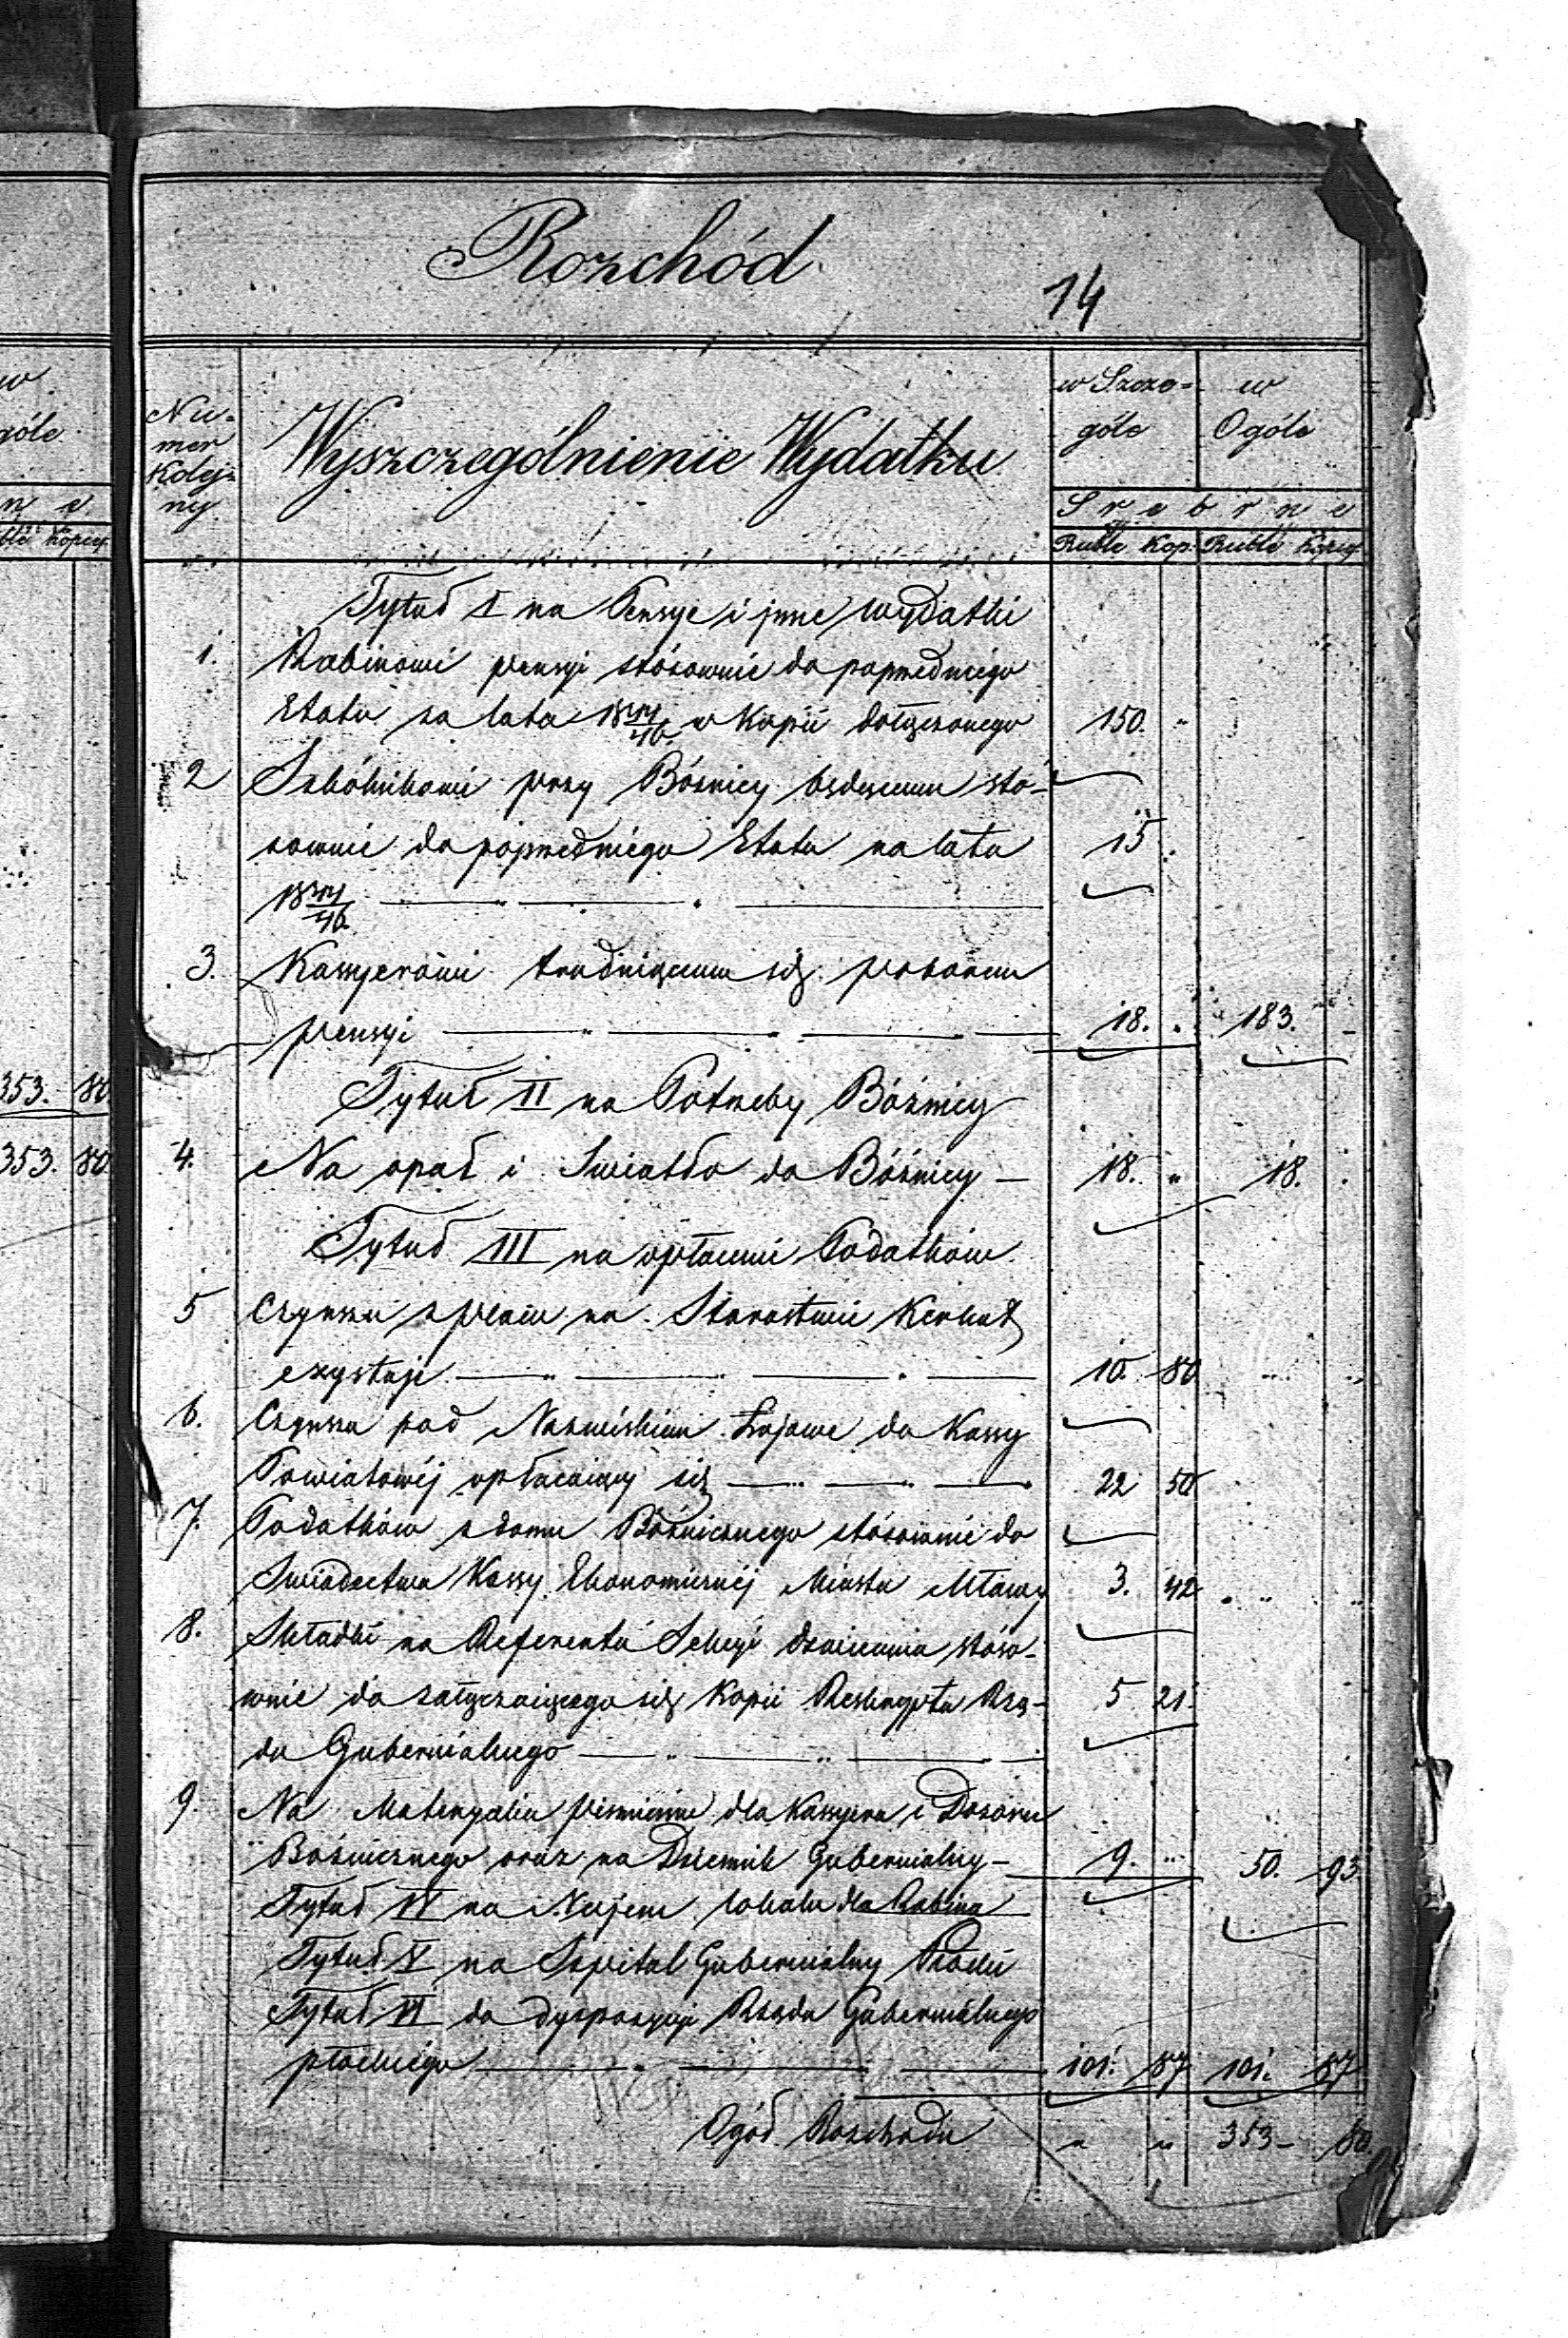 w
góle
n e
ble kopiey.
353. 80
353. 80
Rozchód
14
Nu-
mer
Kolej-
ny
Wyszczególnienie Wydatku
w Szcze-
góle
w
Ogóle
Srebrne
Ruble Kop. Ruble Kopiey.
Tytuł I na Pensye i jnne wydatki
1. Rabinowi pensyi stósownie do poprzedniego
Etatu za lata 1844/46. w Kopii dołączonego 150. "
2 Szkólnikowi przy Bóżnicy będącemu stó-
sownie do poprzedniego Etatu na lata 15 .
1844/46.
3. Kassyerowi trudniącemu się poborem
pensyi 18. " 183. -
Tytuł II na Potrzeby Bóżnicy
4. Na opał i Swiatło do Bóżnicy — 18. " 18. .
Tytuł III na opłacenie Podatków
5 Czynszu z placu na Starostwie Kerkut
exystuje 10. 80
6. Czynszu pod Nazwiskiem Łojowe do Kassy
Powiatowéj opłacaiący się 22 50
7. Podatków z domu Bóżnicznego stósownie do
Swiadectwa Kassy Ekonomicznéj Miasta Mławy 3. 42
8. Składki na Referenta Sekcyi stóso-
wnie do załączaiącego się Kopii Reskryptu Rzą- 5 21.
du Gubernialnego
9. Na Materyalia piśmienne dla Kassyera i Dozoru
Bóżnicznego oraz na Dziennik Gubernialny — 9. " 50. 93
Tytuł IV na Najem lokalu dla Rabina
Tytuł V na Szpital Gubernialny
Tytuł VI do dyspozycyi Rządu Gubernialnego
płockiego 101. 87 101. 87
Ogół Rozchodu " " 353- 80.